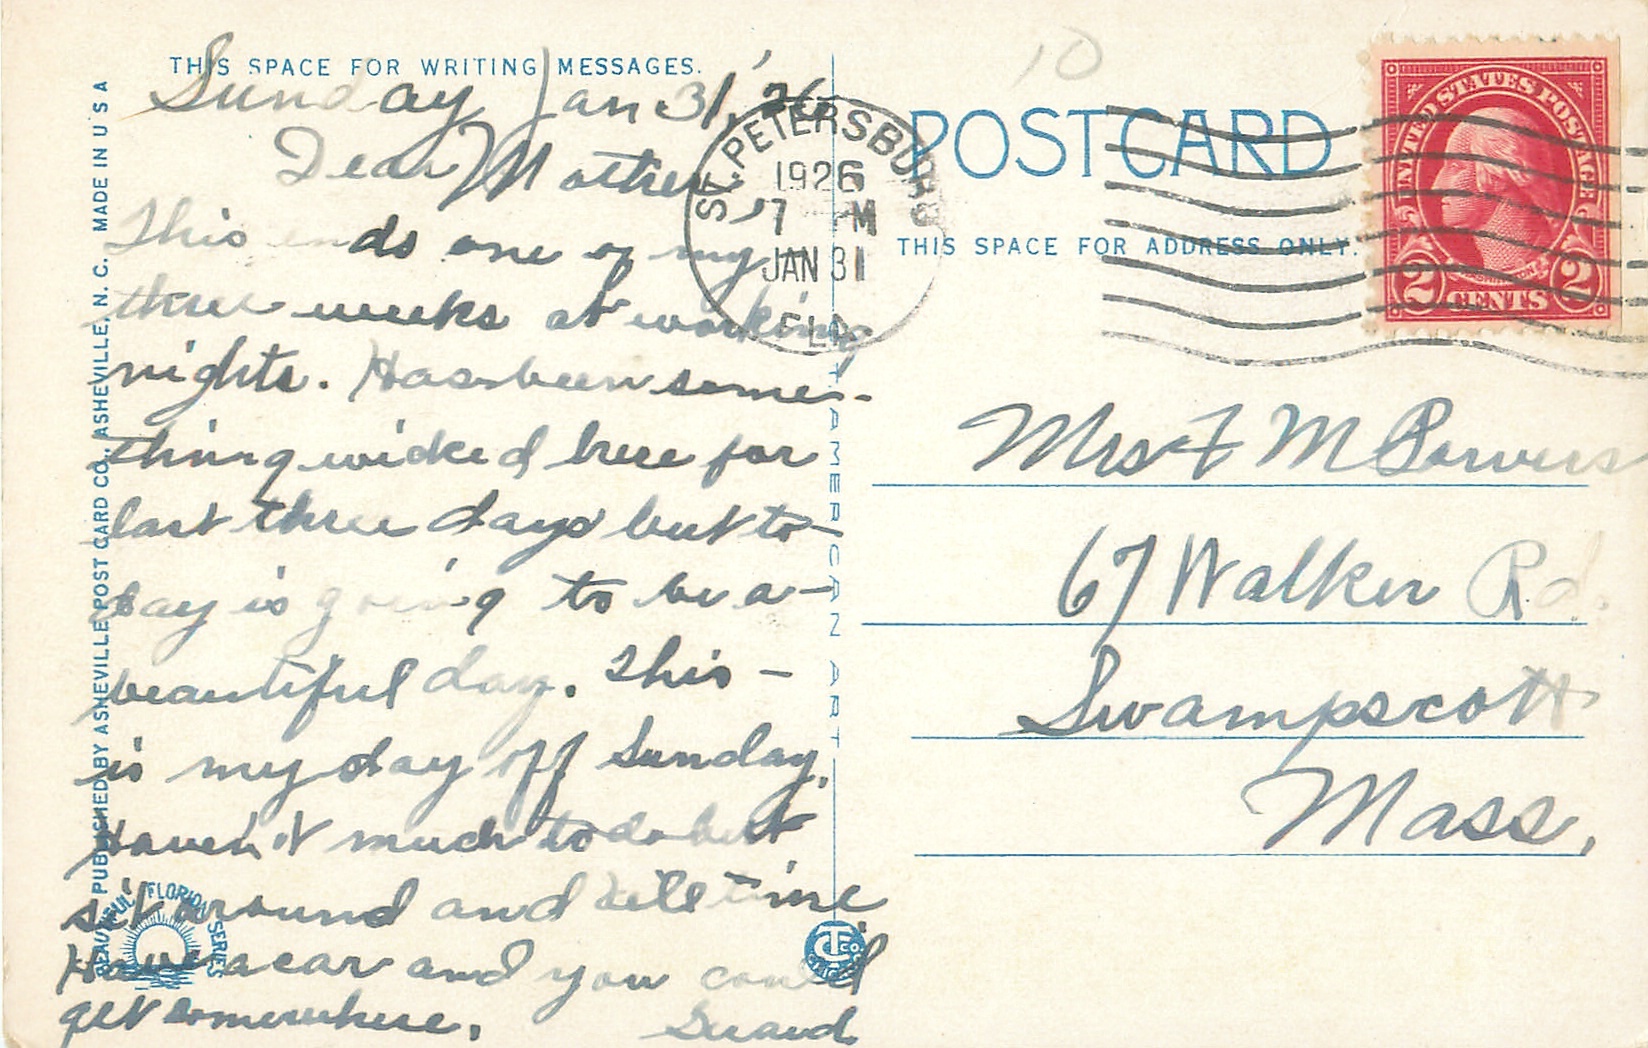 THIS SPACE FOR WRITING MESSAGES.
Sunday Jan 31, '26
Dear Mother
This ends one of my
three weeks at working
nights. Has been some-
thing wicked here for
last three days but to-
day is going to be a-
beautiful day. This -
is my day off Sunday.
Haven't much to do but
sit around and kill time
Have a car and you could
get somewhere.
Girard
PUBLISHED BY ASHEVILLE POST CARD CO., ASHEVILLE, N. C. MADE IN U S A
BEAUTIFUL FLORIDA SERIES
ST. PETERSBURG
1926
7 PM
JAN 31
FLA
AMERICAN ART
10
POST CARD
THIS SPACE FOR ADDRESS ONLY.
UNITED STATES POSTAGE
2 CENTS 2
Mrs F M Powers
67 Walker Rd.
Swampscott
Mass.